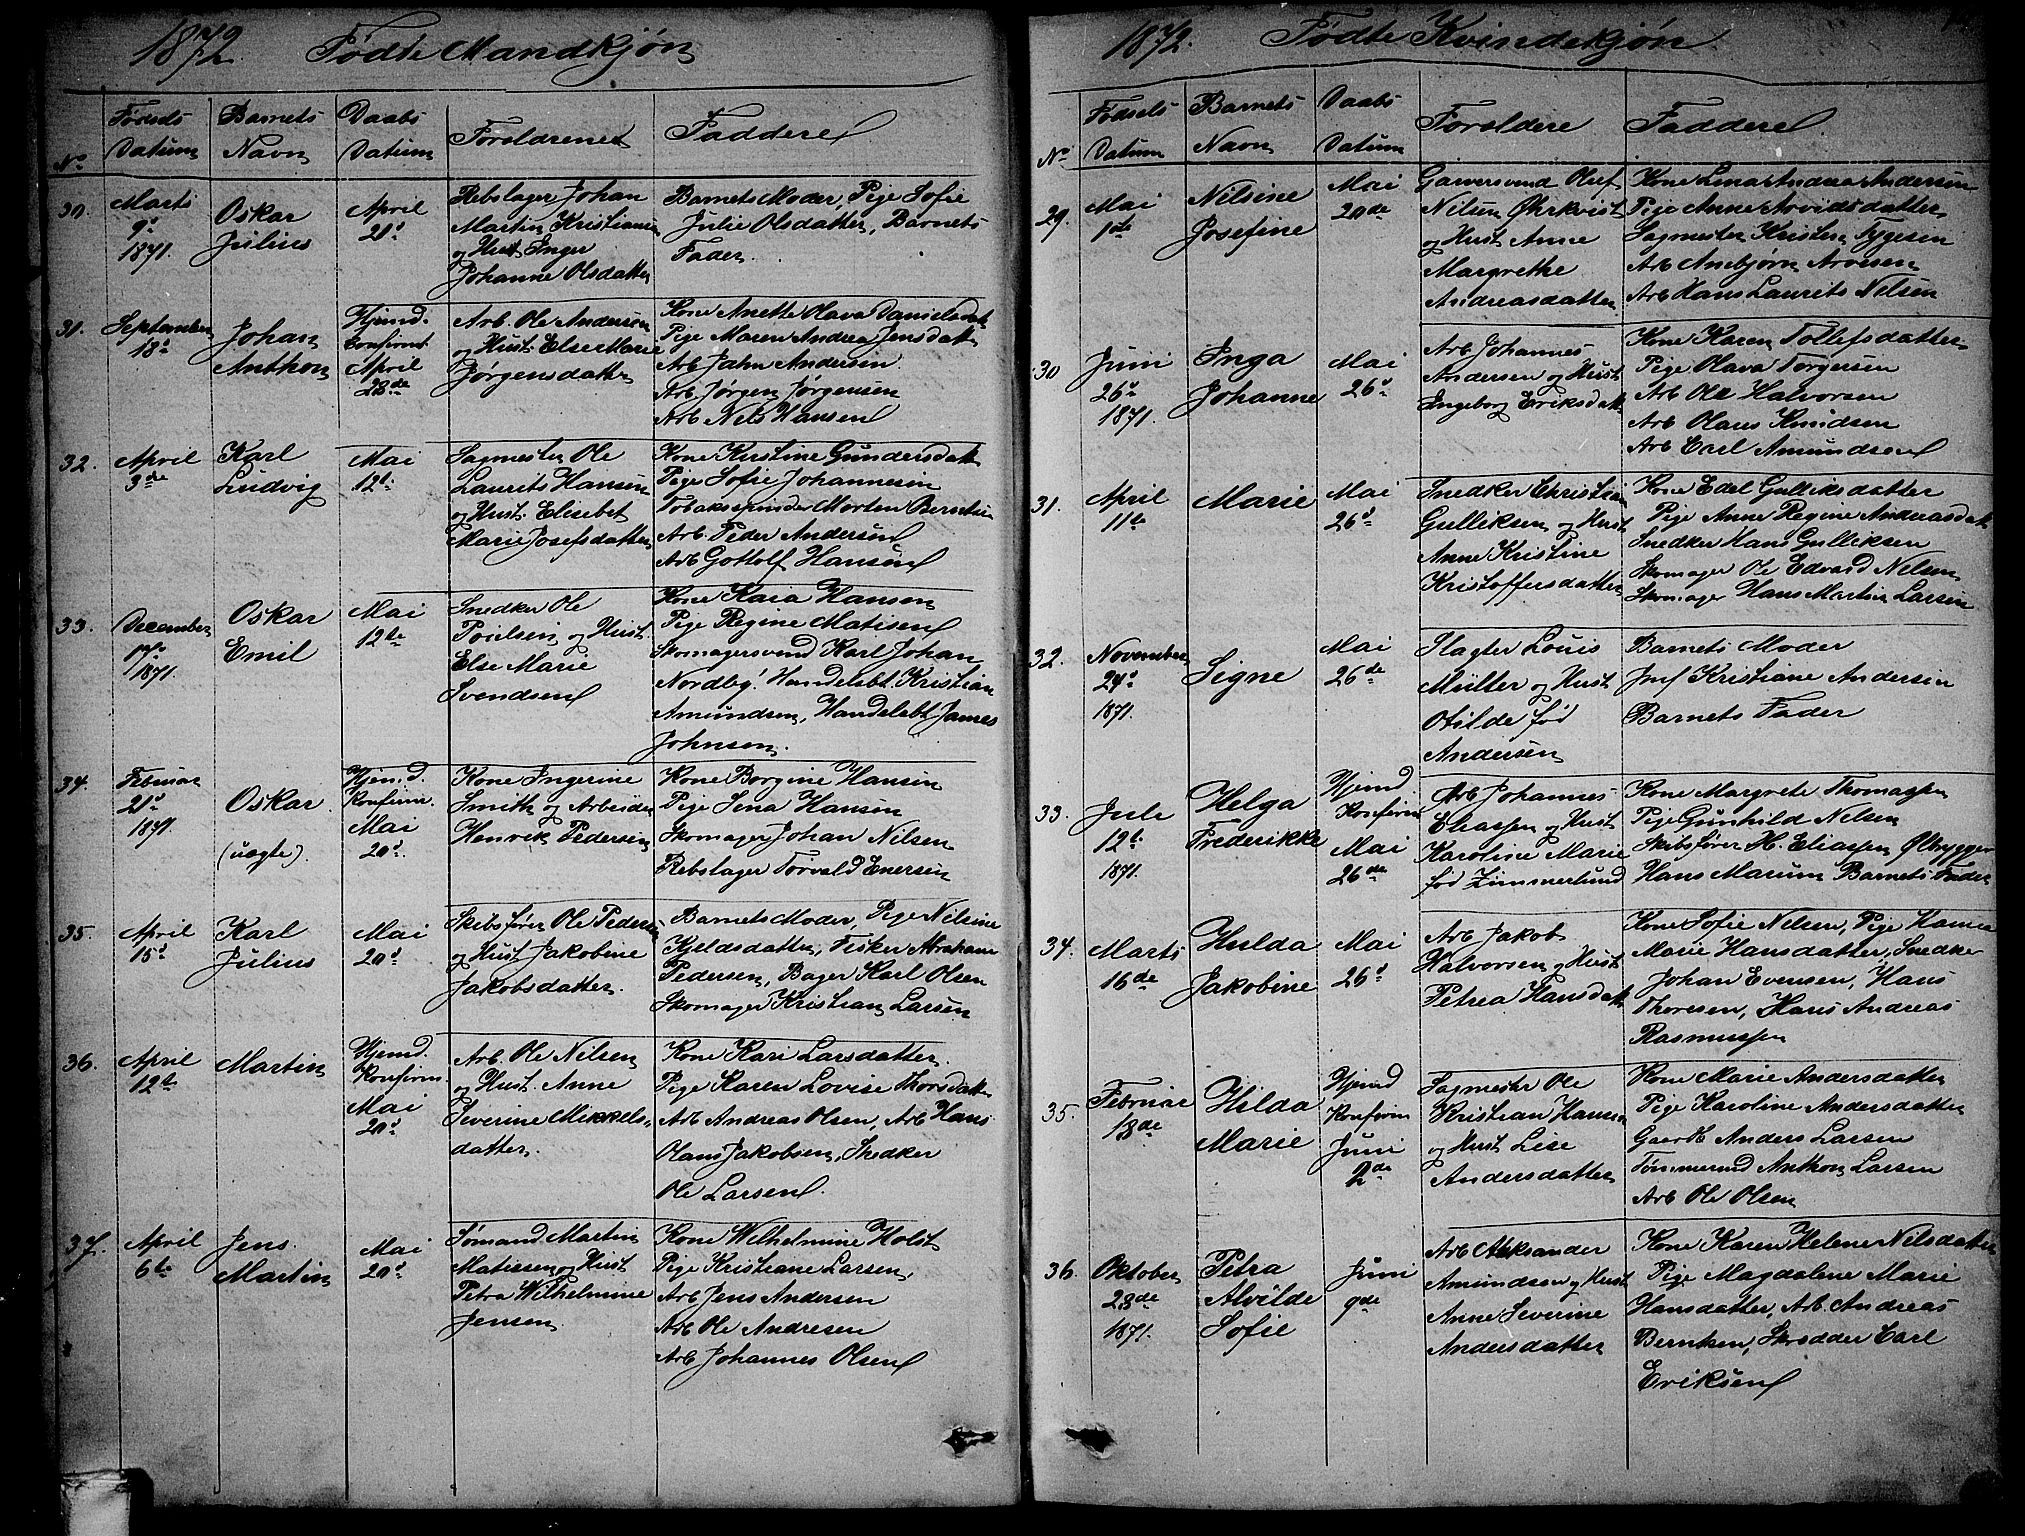 1872. Fødte Mandkjøn
No.
Fødsels Datum
Barnets Navn
Daabs Datum
Foreldrene
Faddere
30.
Marts
9d
1871.
Oskar
Julius
April
21d
Rebslager Johan
Martin Kristiansen
og Hust Inger
Johanne Olsdatter
Barnets Moder, Pige Sofie
Julie Olsdatter, Barnets
Fader.
31.
September
18d
Johan
Anthon
Hjemd.
Confirmt
April
28de
Arb. Ole Andersen
og Hust. Else Marie
Jørgensdatter
Kone Anette Olava Danielsdat
Pige Maren Andrea Jensdatt
Arb Jahn Andersen
Arb Jørgen Jørgensen
Arb Nels Hansen
32.
April
3de
Karl
Ludvig
Mai
12t
Sagmester Ole
Laurits Hansen
og Hust. Elisebet
Marie Josefsdatter
Kone Kirstine Gundersdatt
Pige Sofie Johannesen
Tobakspinder Morten Berntsen
Arb. Peder Andersen
Arb Gottolf Hansen
33.
December
17d
1871.
Oskar
Emil
Mai
12te
Snedker Ole
Poielsen og Hust.
Else Marie
Svendsen
Kone Kaia Hansen
Pige Regine Matisen
Skomagersvend Karl Johan
Nordby. Handelsbt. Kristian
Amundsen, Handelsbt James
Johnsen.
34.
Februar
21d
1871.
Oskar
(uægte).
Hjemd.
Konfirm.
Mai
20d
Kone Ingerine
Smith og Arbeider
Henrik Pedersen
Kone Borgine Hansen
Pige Jena Hansen
Skomager Johan Nilsen
Rebslager Torvald Enersen
35.
April
15d
Karl
Julius
Mai
20d
Skibsfører Ole Pedersen
og Hust Jakobine
Jakobsdatter.
Barnets Moder, Pige Nilsine
Kjeldsdatter, Fisker Abraham
Pedersen, Bager Karl Olsen
Skomager Kristian Larsen
36.
April
12te
Martin
Hjemd.
Konfirm.
Mai
20d
Arb. Ole Nilsen
og Hust. Anne
Severine Mikkels-
datter.
Kone Kari Larsdatter.
Pige Karen Lovise Thorsdatt
Arb Andreas Olsen, Arb Hans
Olaus Jakobsen, Snedker
Ole Larsen.
37.
April
6te
Jens
Martin
Mai
20d
Sømand Martin
Matisen og Hust
Petra Wilhelmine
Jensen.
Kone Wilhelmine Holst
Pige Kristiane Larsen,
Arb Jens Andersen
Arb Ole Andresen
Arb Johannes Olsen
1872. Fødte Kvindekjøn.
No.
Fødsels Datum
Barnets Navn
Daabs Datum
Foreldere
Faddere
29.
Mai
1ste
Nilsine
Josefine
Mai
20de
Garversvend Oluf
Nilsen Øhrkvist
og Hust Anne
Margrethe
Andreasdatter
Kone Lena Andrea Andersen
Pige Anne Arvidsdatter
Sagmester Kristen Tygesen
Arb Anebjørn Arvesen
Arb Hans Laurits Nilsen
30
Juni
26d
1871.
Inga
Johanne
Mai
26d
Arb Johannes
Andersen og Hust
Engeborg Eriksdat
Kone Karen Tollefsdatter
Pige Olava Torgersen
Arb Ole Halvorsen
Arb Olaus Knudsen
Arb Carl Amundsen
31.
April
11te
Marie
Mai
26d
Snedker Christian
Gulliksen og Hust
Anne Kristine
Kristoffersdatter
Kone Edel Gulliksdatter
Pige Anne Regine Andreasdat
Snedker Hans Gulliksen
Skomager Ole Edvard Nilsen
Skomager Hans Martin Larsen
32.
November
24d
1871.
Signe
Mai
26de
Slagter Louis
Müller og Hust
Otilde fød
Andersen
Barnets Moder
Jmf Kristiane Andersen
Barnets Fader
33.
Juli
12t
1871.
Helga
Frederikke
Hjemd.
Konfirm
Mai
26de
Arb Johannes
Eliassen og Hust
Karoline Marie
fød Zimmerlund
Kone Margrete Thomassen
Pige Gunhild Nelsen
Skibsfører H. Eliassen Ølbrygger
Hans Marum Barnets Fader
34.
Marts
16de
Hulda
Jakobine
Mai
26d
Arb Jakob
Halvorsen og Hust
Petrea Hansdatt
Kone Sofie Nilsen, Pige Hanna
Marie Hansdatter, Snedker
Johan Evensen, Hans
Thoresen, Hans Andreas
Rasmussen
35.
Februar
18de
Hilda
Marie
Hjemd
Konfirm
Juni
2de
Sagmestr Ole
Kristian Hansen
og Hust Lese
Andersdatter
Kone Marie Andersdatter
Pige Karoline Andersdatter
Anders Larsen
Tømmermd Anthon Larsen
Arb Ole Olsen
36.
Oktober
28de
1871.
Petra
Alvilde
Sofie
Juni
9de
Arb Aleksander
Amundsen og Hust
Anne Severine
Andersdatter
Kone Karen Helene Nilsdatter
Pige Magdalene Marie
Hansdatter, Arb. Andreas
Berntsen, Skrædder Carl
Eriksen